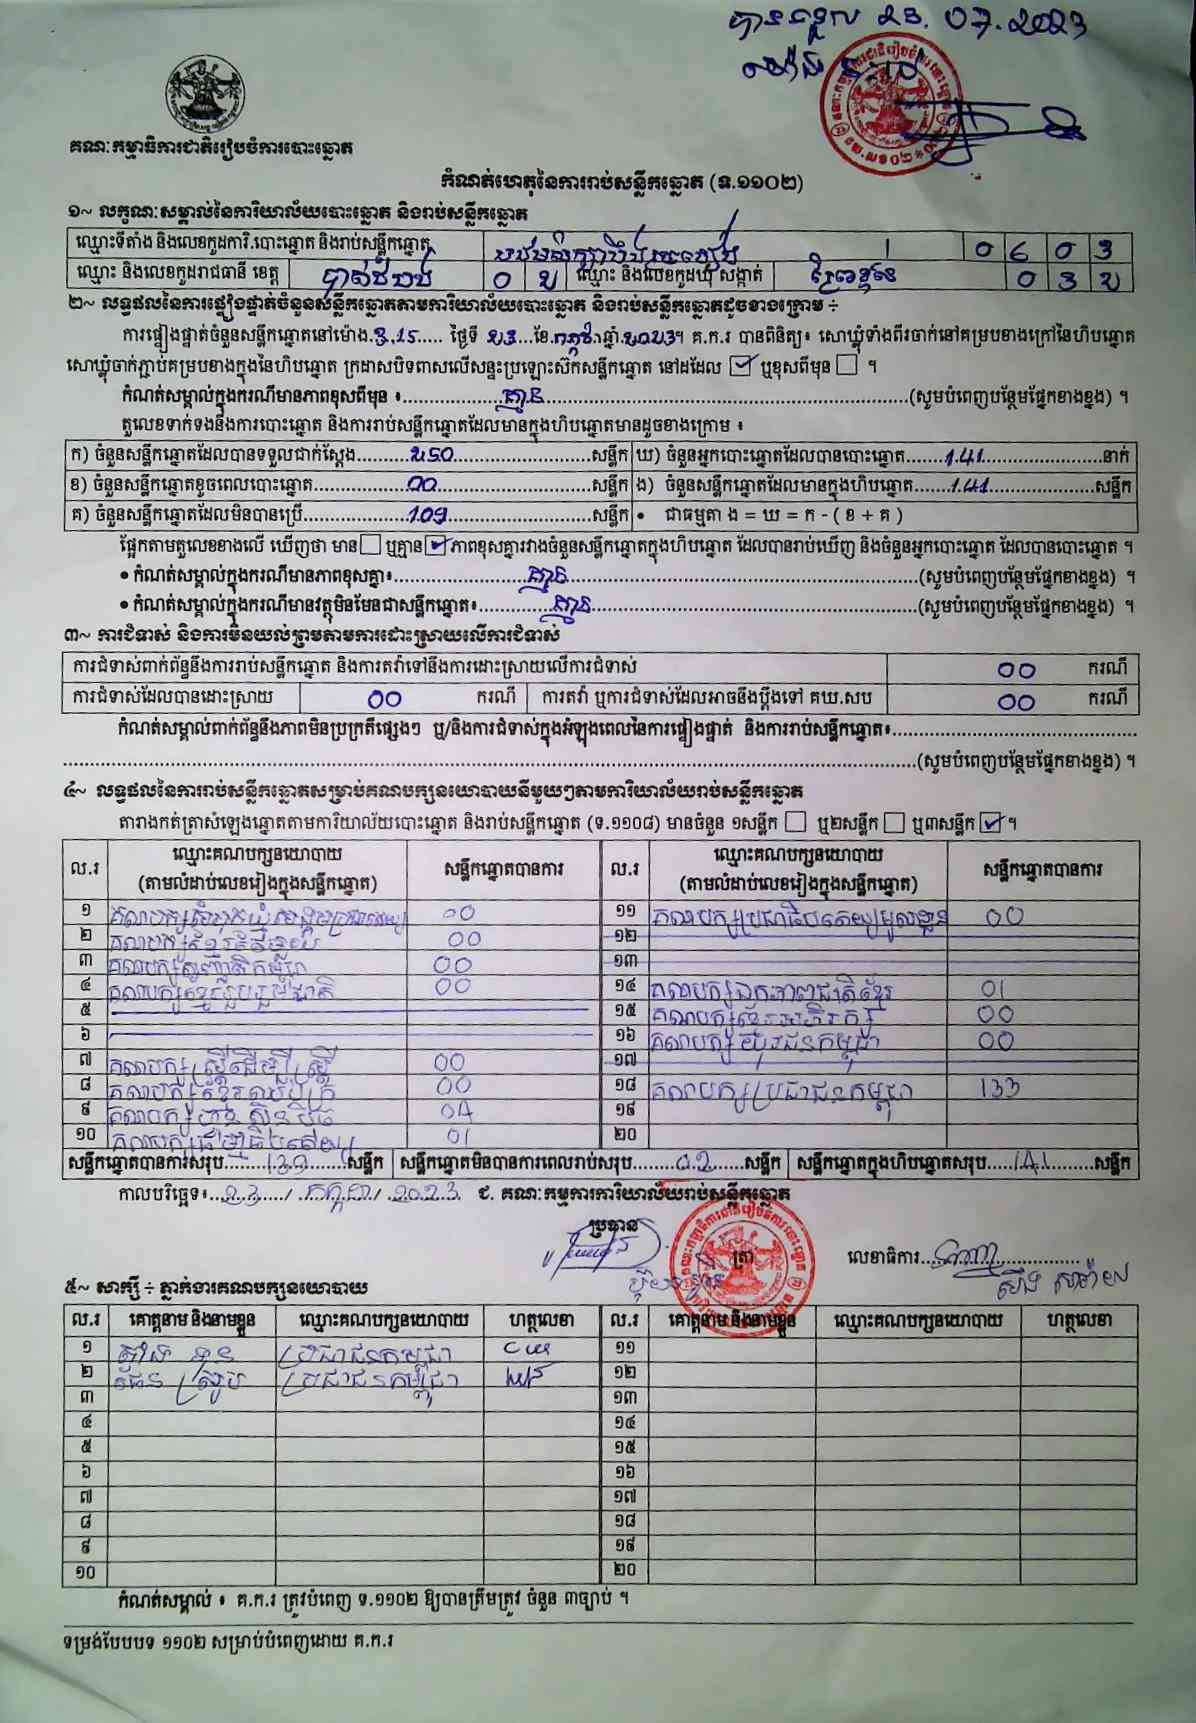 បានទទួល 23.07.2023
គណៈកម្មាធិការជាតិរៀបចំការបោះឆ្នោត
កំណត់ហេតុនៃការរាប់សន្លឹកឆ្នោត (ទ.១១០២)
១~ លក្ខណៈសម្គាល់នៃការិយាល័យបោះឆ្នោត និងរាប់សន្លឹកឆ្នោត
ឈ្មោះទីតាំង និងលេខកូដការិ.បោះឆ្នោត និងរាប់សន្លឹកឆ្នោត 0 6 0 3
ឈ្មោះ និងលេខកូដរាជធានី ខេត្ត បាត់ដំបង 0 ២ ឈ្មោះ និងលេខកូដឃុំ សង្កាត់ ព្រៃខ្ពស់ 0 3 ២
២~ លទ្ធផលនៃការផ្ទៀងផ្ទាត់ចំនួនសន្លឹកឆ្នោតតាមការិយាល័យបោះឆ្នោត និងរាប់សន្លឹកឆ្នោតដូចខាងក្រោម ÷
ការផ្ទៀងផ្ទាត់ចំនួនសន្លឹកឆ្នោតនៅម៉ោង.3.15..... ថ្ងៃទី 23...ខែ.កក្កដា.ឆ្នាំ.2023។ គ.ក.រ បានពិនិត្យ៖ សោឃ្លុំទាំងពីរចាក់នៅគម្របខាងក្រៅនៃហិបឆ្នោត
សោឃ្លុំចាក់ភ្ជាប់គម្របខាងក្នុងនៃហិបឆ្នោត ក្រដាសបិទពាសលើសន្ទះប្រឡោះស៊កសន្លឹកឆ្នោត នៅដដែល ✓ ឬខុសពីមុន ។
កំណត់សម្គាល់ក្នុងករណីមានភាពខុសពីមុន ៖ គ្មាន (សូមបំពេញបន្ថែមផ្នែកខាងខ្នង) ។
តួលេខទាក់ទងនឹងការបោះឆ្នោត និងការរាប់សន្លឹកឆ្នោតដែលមានក្នុងហិបឆ្នោតមានដូចខាងក្រោម ៖
ក) ចំនួនសន្លឹកឆ្នោតដែលបានទទួលជាក់ស្តែង 250 សន្លឹក ឃ) ចំនួនអ្នកបោះឆ្នោតដែលបានបោះឆ្នោត 141 នាក់
ខ) ចំនួនសន្លឹកឆ្នោតខូចពេលបោះឆ្នោត 00 សន្លឹក ង) ចំនួនសន្លឹកឆ្នោតដែលមានក្នុងហិបឆ្នោត 141 សន្លឹក
គ) ចំនួនសន្លឹកឆ្នោតដែលមិនបានប្រើ 109 សន្លឹក • ជាធម្មតា ង = ឃ = ក - ( ខ + គ )
ផ្អែកតាមតួលេខខាងលើ ឃើញថា មាន ឬគ្មាន ✓ ភាពខុសគ្នារវាងចំនួនសន្លឹកឆ្នោតក្នុងហិបឆ្នោត ដែលបានរាប់ឃើញ និងចំនួនអ្នកបោះឆ្នោត ដែលបានបោះឆ្នោត ។
• កំណត់សម្គាល់ក្នុងករណីមានភាពខុសគ្នា៖ គ្មាន (សូមបំពេញបន្ថែមផ្នែកខាងខ្នង) ។
• កំណត់សម្គាល់ក្នុងករណីមានវត្ថុមិនមែនជាសន្លឹកឆ្នោត៖ គ្មាន (សូមបំពេញបន្ថែមផ្នែកខាងខ្នង) ។
៣~ ការជំទាស់ និងការមិនយល់ព្រមតាមការដោះស្រាយលើការជំទាស់
ការជំទាស់ពាក់ព័ន្ធនឹងការរាប់សន្លឹកឆ្នោត និងការតវ៉ាទៅនឹងការដោះស្រាយលើការជំទាស់ 00 ករណី
ការជំទាស់ដែលបានដោះស្រាយ 00 ករណី ការតវ៉ា ឬការជំទាស់ដែលអាចនឹងប្តឹងទៅ គឃ.សប 00 ករណី
កំណត់សម្គាល់ពាក់ព័ន្ធនឹងភាពមិនប្រក្រតីផ្សេងៗ ឬ/និងការជំទាស់ក្នុងអំឡុងពេលនៃការផ្ទៀងផ្ទាត់ និងការរាប់សន្លឹកឆ្នោត៖
(សូមបំពេញបន្ថែមផ្នែកខាងខ្នង) ។
៤~ លទ្ធផលនៃការរាប់សន្លឹកឆ្នោតសម្រាប់គណបក្សនយោបាយនីមួយៗតាមការិយាល័យរាប់សន្លឹកឆ្នោត
តារាងកត់ត្រាសំឡេងឆ្នោតតាមការិយាល័យបោះឆ្នោត និងរាប់សន្លឹកឆ្នោត (ទ.១១០៨) មានចំនួន ១សន្លឹក ឬ២សន្លឹក ឬ៣សន្លឹក ✓ ។
ល.រ ឈ្មោះគណបក្សនយោបាយ សន្លឹកឆ្នោតបានការ ល.រ ឈ្មោះគណបក្សនយោបាយ សន្លឹកឆ្នោតបានការ
(តាមលំដាប់លេខរៀងក្នុងសន្លឹកឆ្នោត) (តាមលំដាប់លេខរៀងក្នុងសន្លឹកឆ្នោត)
១ គណបក្សសំបុកឃ្មុំសង្គមប្រជាធិបតេយ្យ 00 ១១ គណបក្សប្រជាធិបតេយ្យមូលដ្ឋាន 00
២ គណបក្សខ្មែរ 00 ១២
៣ គណបក្ស 00 ១៣
៤ គណបក្សខ្មែររួបរួមជាតិ 00 ១៤ គណបក្សឯកភាពជាតិខ្មែរ 01
៥ ១៥ គណបក្សខ្មែរអភិរក្ស 00
៦ ១៦ គណបក្សយុវជនកម្ពុជា 00
៧ គណបក្សស្ត្រីដើម្បីស្ត្រី 00 ១៧
៨ គណបក្សខ្មែរឈប់ក្រ 00 ១៨ គណបក្សប្រជាជនកម្ពុជា 133
៩ គណបក្សហ្វ៊ុនស៊ិនប៉ិច 04 ១៩
១០ គណបក្សធម្មាធិបតេយ្យ 01 ២០
សន្លឹកឆ្នោតបានការសរុប 139 សន្លឹក សន្លឹកឆ្នោតមិនបានការពេលរាប់សរុប 02 សន្លឹក សន្លឹកឆ្នោតក្នុងហិបឆ្នោតសរុប 141 សន្លឹក
កាលបរិច្ឆេទ៖ 23 / កក្កដា / 2023 ជ. គណៈកម្មការការិយាល័យរាប់សន្លឹកឆ្នោត
ប្រធាន ត្រា លេខាធិការ
៥~ សាក្សី ÷ ភ្នាក់ងារគណបក្សនយោបាយ
ល.រ គោត្តនាម និងនាមខ្លួន ឈ្មោះគណបក្សនយោបាយ ហត្ថលេខា ល.រ គោត្តនាម និងនាមខ្លួន ឈ្មោះគណបក្សនយោបាយ ហត្ថលេខា
១ ប្រជាជនកម្ពុជា ១១
២ ប្រជាជនកម្ពុជា ១២
៣ ១៣
៤ ១៤
៥ ១៥
៦ ១៦
៧ ១៧
៨ ១៨
៩ ១៩
១០ ២០
កំណត់សម្គាល់ ៖ គ.ក.រ ត្រូវបំពេញ ទ.១១០២ ឱ្យបានត្រឹមត្រូវ ចំនួន ៣ច្បាប់ ។
ទម្រង់បែបបទ ១១០២ សម្រាប់បំពេញដោយ គ.ក.រ